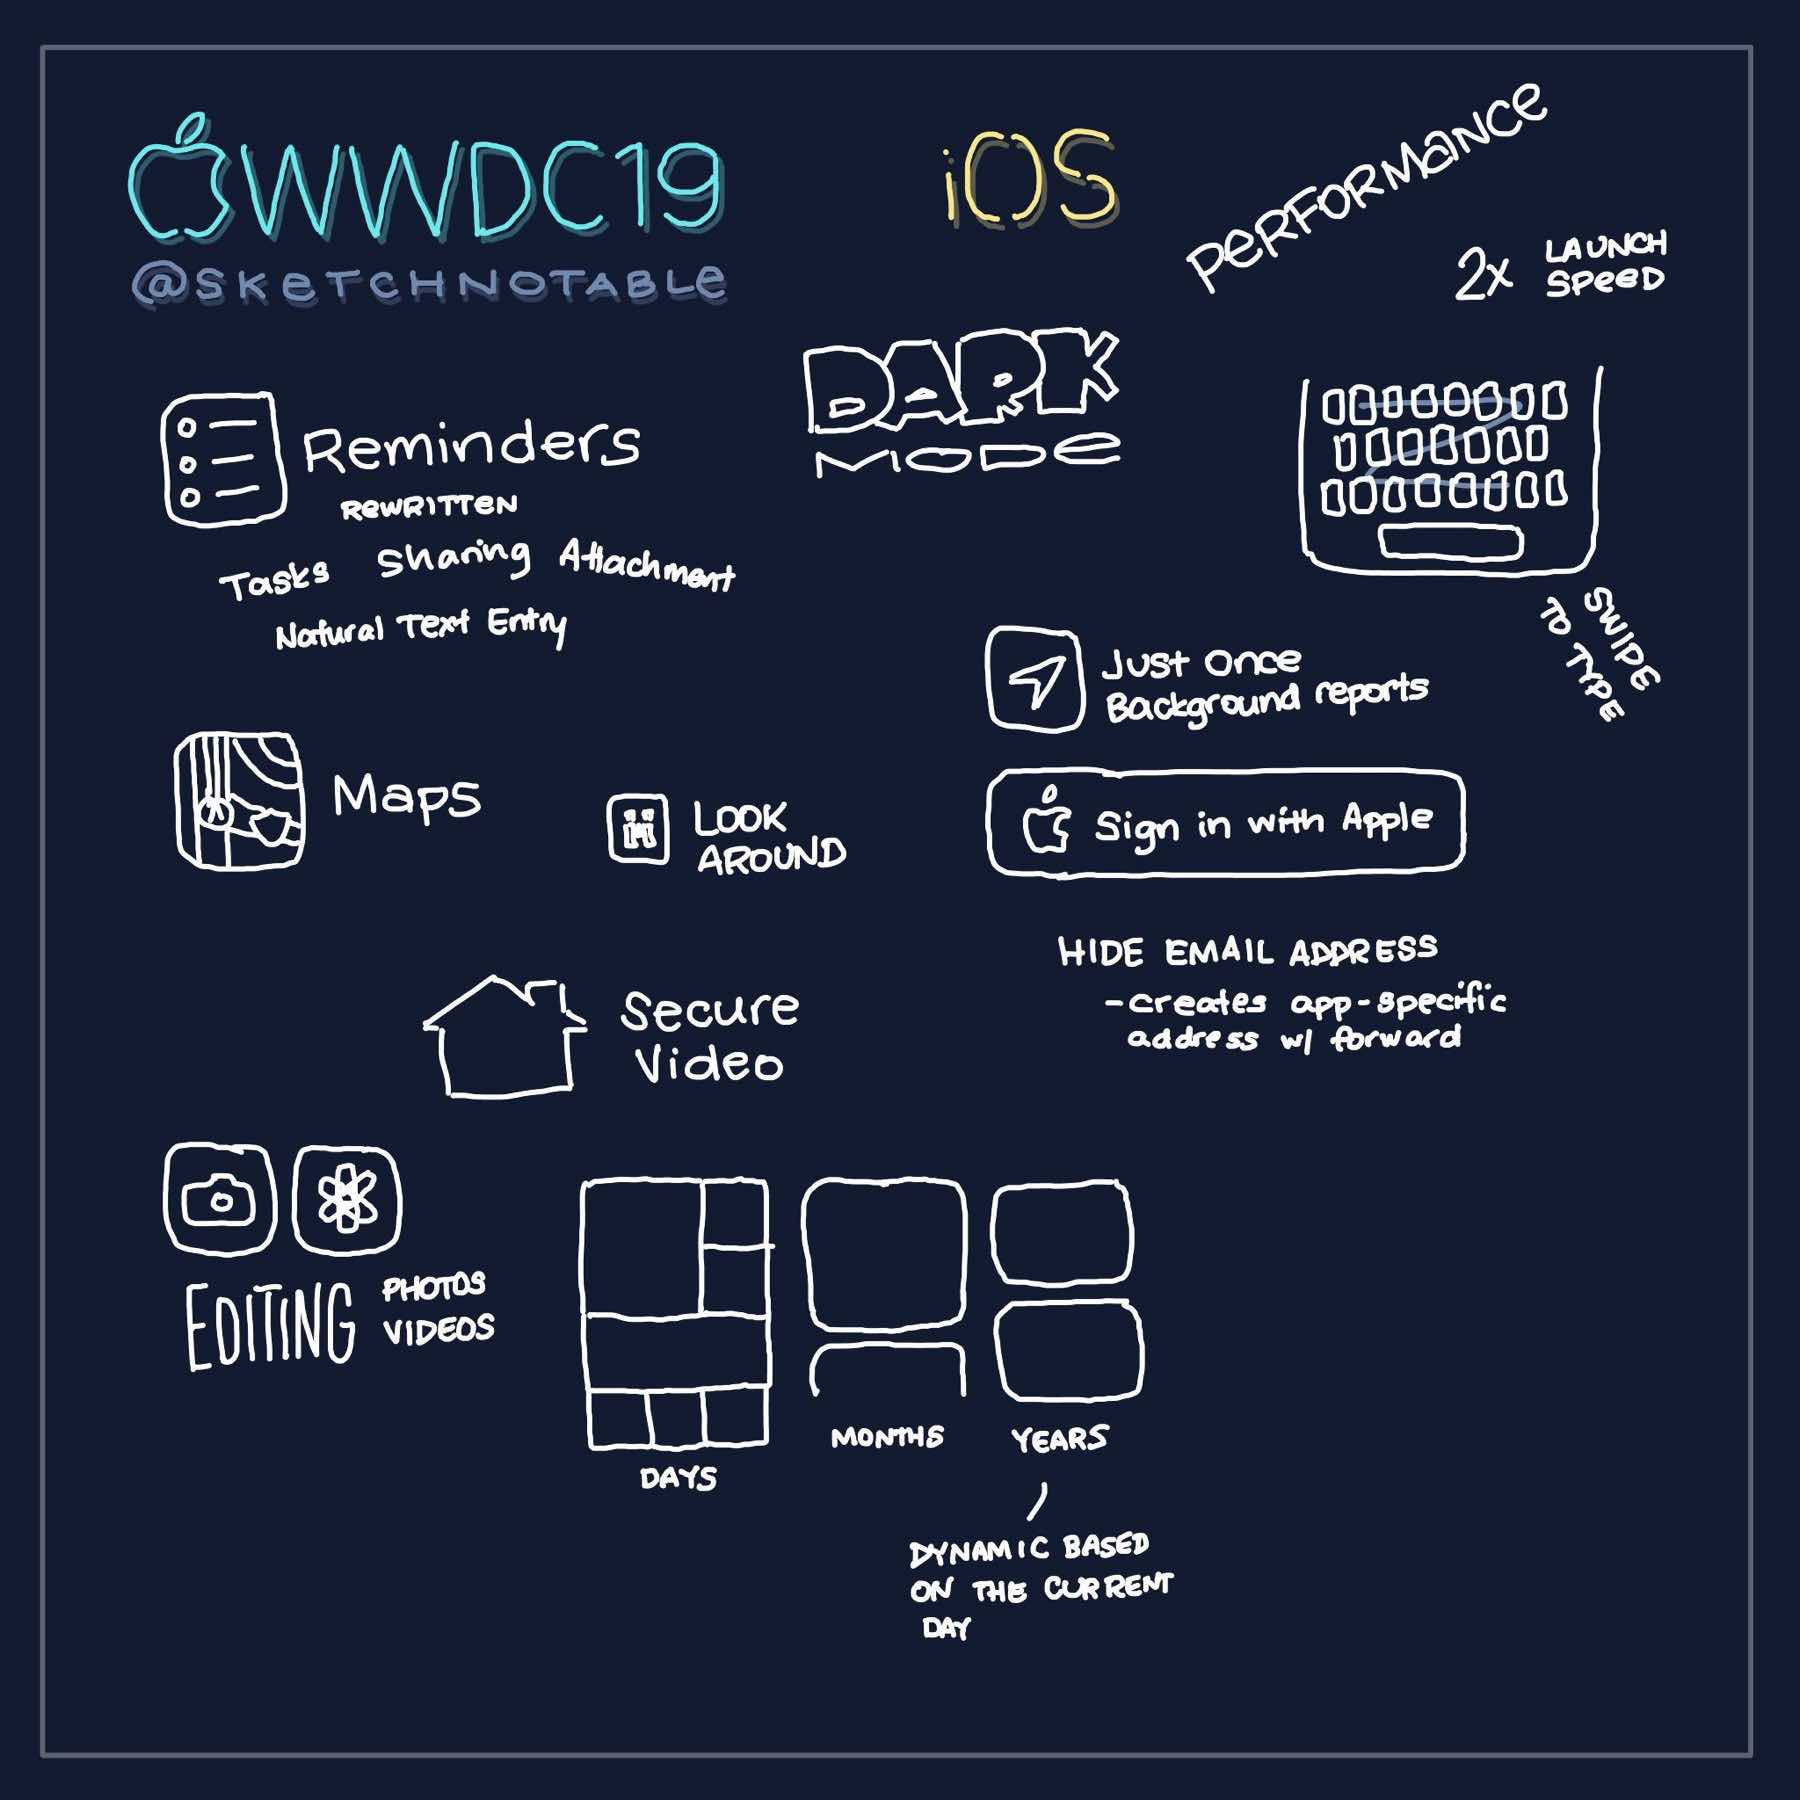 WWDC19
@SKETCHNOTABLE
iOS
PERFORMANCE
2x LAUNCH
SPEED
DARK
MODE
Reminders
REWRITTEN
Tasks Sharing Attachment
Natural Text Entry
SWIPE
TO TYPE
Just Once
Background reports
Maps
LOOK
AROUND
Sign in with Apple
HIDE EMAIL ADDRESS
-creates app-specific
address w/ forward
Secure
Video
EDITING PHOTOS
VIDEOS
DAYS
MONTHS
YEARS
DYNAMIC BASED
ON THE CURRENT
DAY